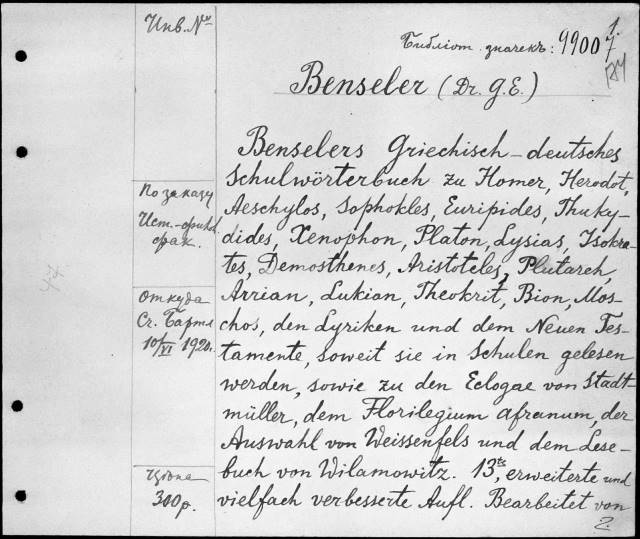 Инв. №
Библіот. значекъ: 9900 1/7
Benseler (Dr. G. E.)
Benselers Griechisch-deutsches
Schulwörterbuch zu Homer, Herodot,
Aeschylos, Sophokles, Euripides, Thuky-
dides, Xenophon, Platon, Lysias, Isokra-
tes, Demosthenes, Aristoteles, Plutarch,
Arrian, Lukian, Theokrit, Bion, Mos-
chos, den Lyriken und dem Neuen Tes-
tamente, soweit sie in Schulen gelesen
werden, sowie zu den Eclogae von Stadt-
müller, dem Florilegium Afranum, der
Auswahl von Weissenfels und dem Lese-
buch von Wilamowitz. 13te, erweiterte und
vielfach verbesserte Aufl. Bearbeitet von
2.
По заказу
Ист.-
фак.
Откуда
10/VI 1920.
Цѣна
300 р.